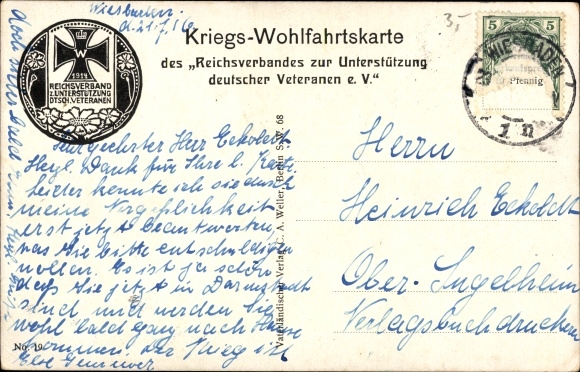 Wiesbaden
d. 21.7.16
Kriegs-Wohlfahrtskarte
des „Reichsverbandes zur Unterstützung
deutscher Veteranen e. V."
W
1914
REICHSVERBAND
Z.UNTERSTÜTZUNG
DTSCH.VETERANEN
5 5
WIESBADEN
Pfennig
Sehr geehrter Herr Eckoldt
Herzl. Dank für Ihre l. Karte
leider konnte ich sie durch
meine Vergeßlichkeit
erst jetzt beantworten
was Sie bitte entschuldigen
wollen. Es ist ja schön
daß Sie jetzt in Darmstadt
sind und werden Sie
wohl bald ganz nach Hause
kommen. Der Krieg ist
Else
Herrn
Heinrich Eckoldt
Ober-Ingelheim
Verlagsbuchdruckerei
Vaterländischer Verlag C. A. Weller, Berlin S.W. 68
No. 19